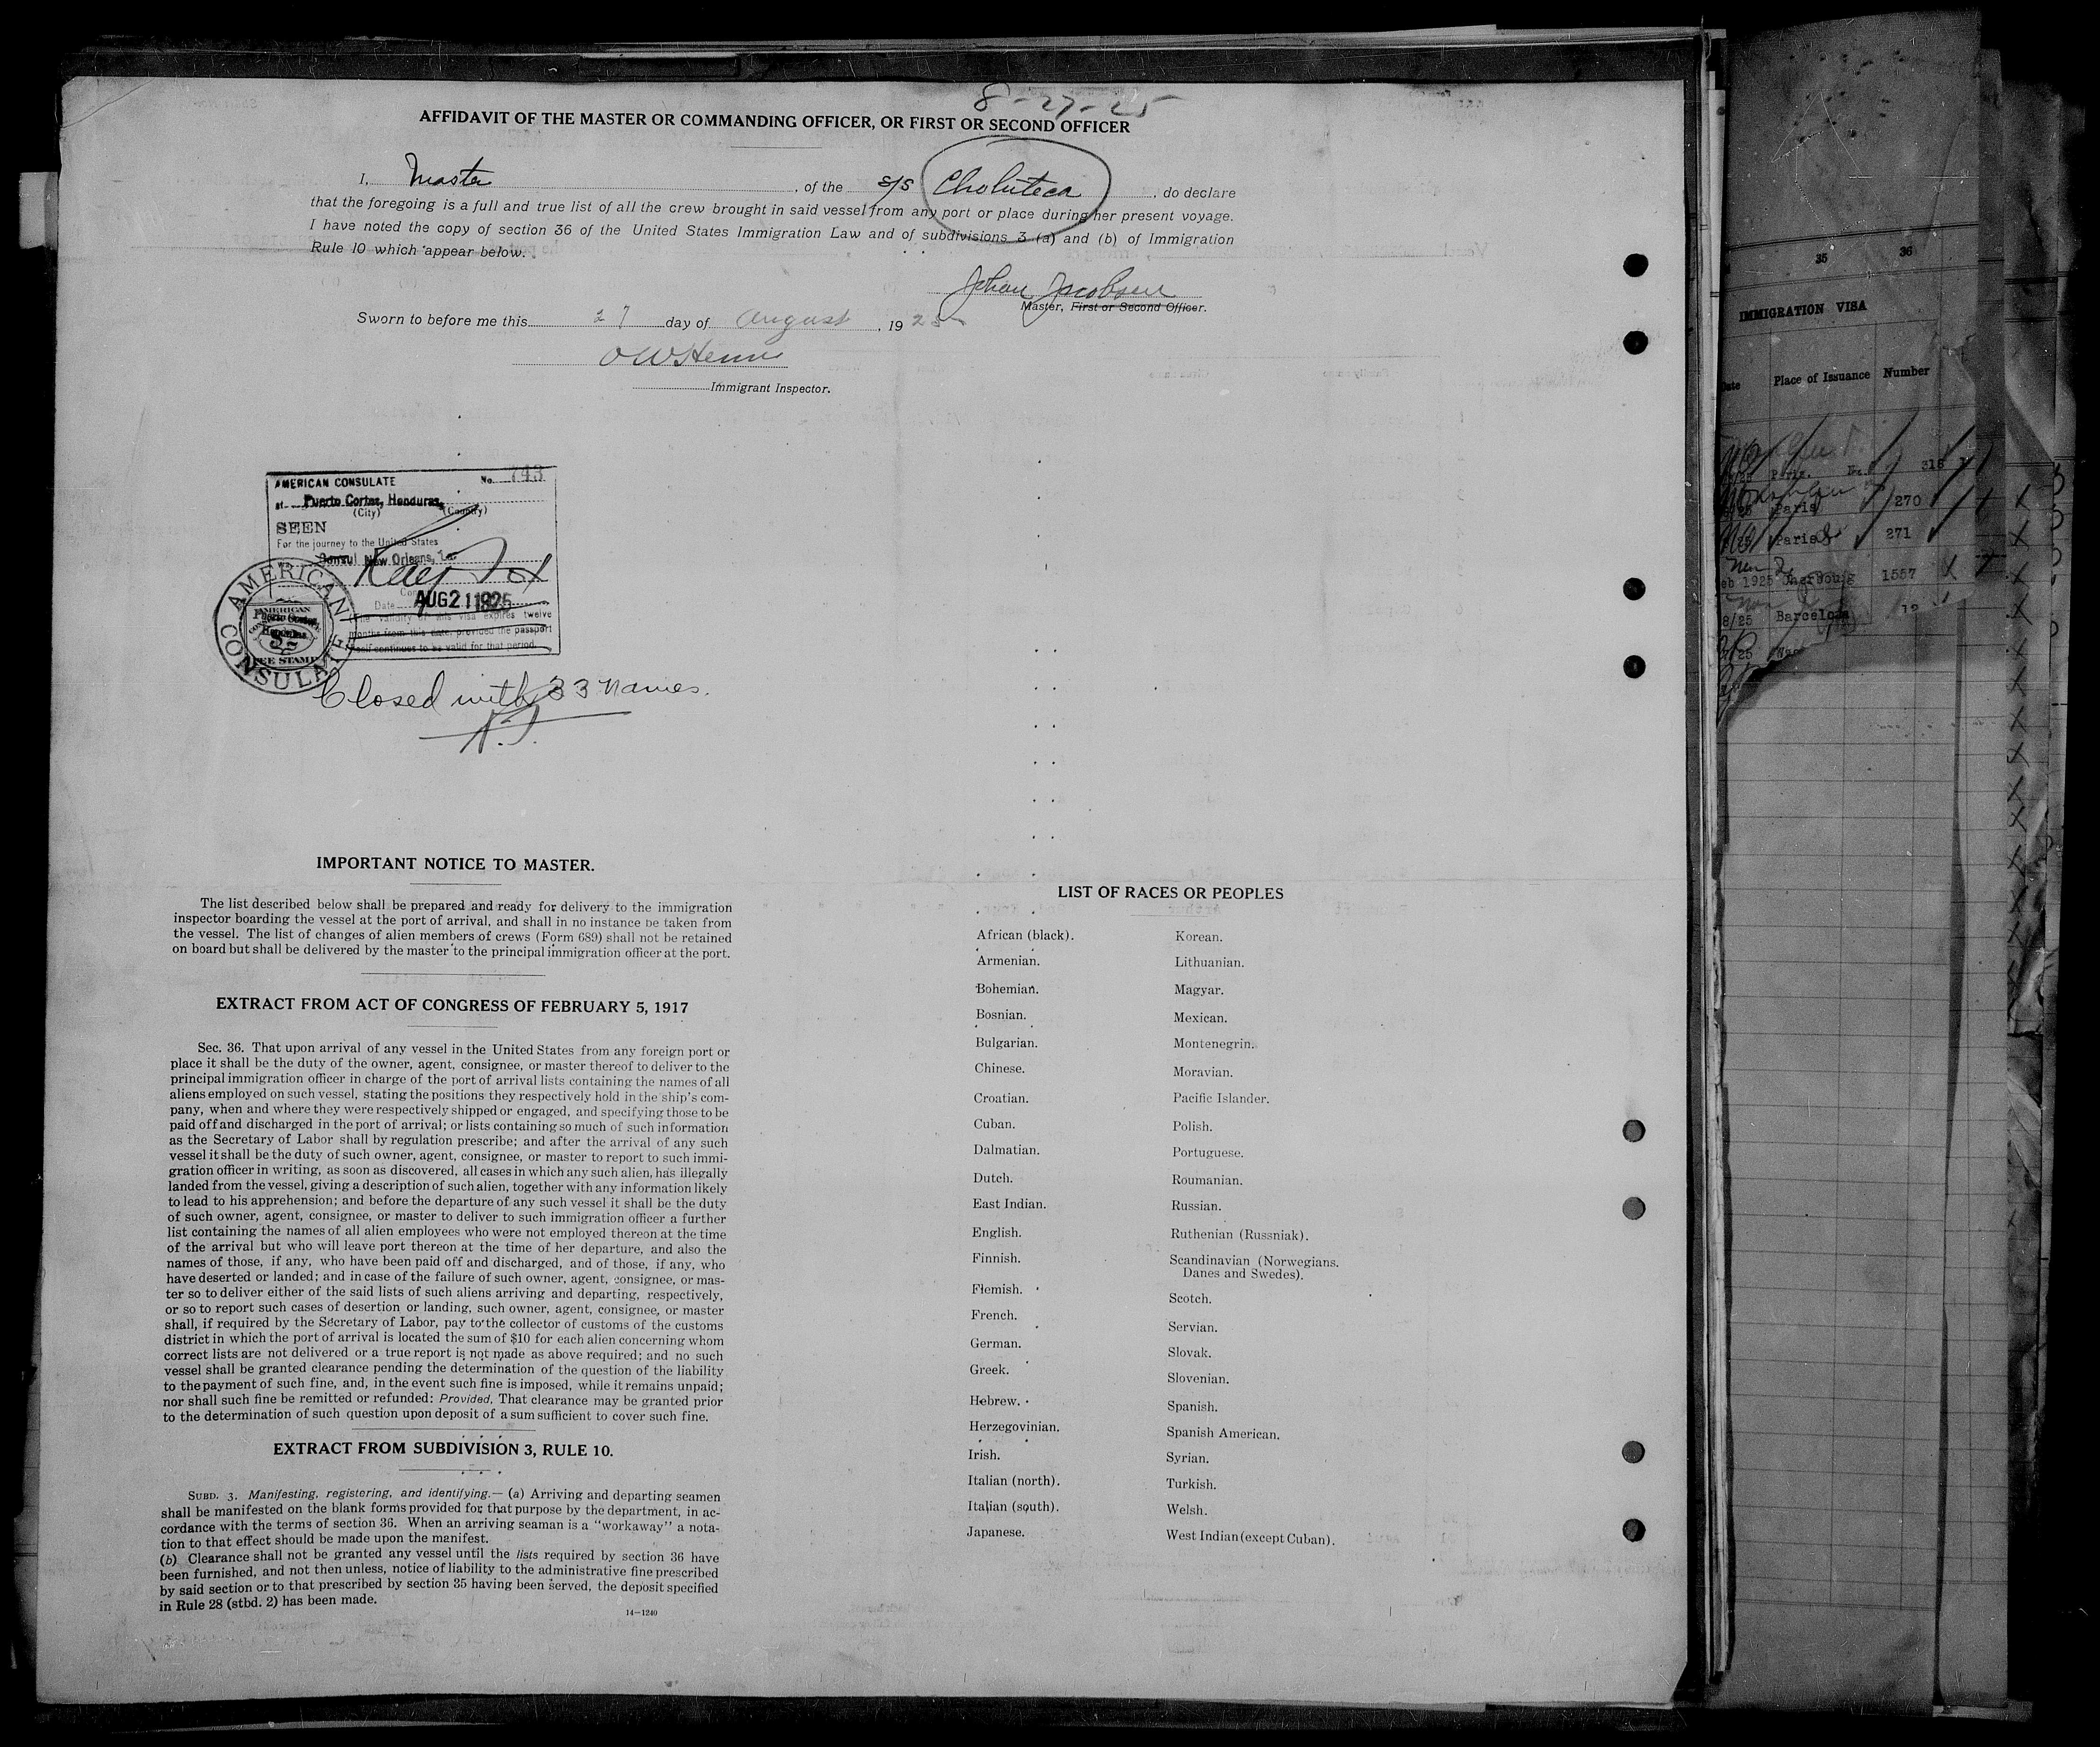 8-27-25
AFFIDAVIT OF THE MASTER OR COMMANDING OFFICER, OR FIRST OR SECOND OFFICER
I, Master, of the S/S Choluteca, do declare
that the foregoing is a full and true list of all the crew brought in said vessel from any port or place during her present voyage.
I have noted the copy of section 36 of the United States Immigration Law and of subdivisions 3 (a) and (b) of Immigration
Rule 10 which appear below.
Johan Jacobsen
Master, First or Second Officer.
Sworn to before me this 27 day of August, 1925
Immigrant Inspector.
AMERICAN CONSULATE No. 743
at Puerto Cortes, Honduras,
(City) (Country)
SEEN
For the journey to the United States
New Orleans, La.
Date AUG 21 1925
The validity of this visa expires twelve
months from this date, provided the passport
itself continues to be valid for that period.
AMERICAN CONSULATE
AMERICAN
Puerto Cortes,
Honduras
FEE STAMP
Closed with 33 names.
IMPORTANT NOTICE TO MASTER.
The list described below shall be prepared and ready for delivery to the immigration
inspector boarding the vessel at the port of arrival, and shall in no instance be taken from
the vessel. The list of changes of alien members of crews (Form 689) shall not be retained
on board but shall be delivered by the master to the principal immigration officer at the port.
EXTRACT FROM ACT OF CONGRESS OF FEBRUARY 5, 1917
Sec. 36. That upon arrival of any vessel in the United States from any foreign port or
place it shall be the duty of the owner, agent, consignee, or master thereof to deliver to the
principal immigration officer in charge of the port of arrival lists containing the names of all
aliens employed on such vessel, stating the positions they respectively hold in the ship's com-
pany, when and where they were respectively shipped or engaged, and specifying those to be
paid off and discharged in the port of arrival; or lists containing so much of such information
as the Secretary of Labor shall by regulation prescribe; and after the arrival of any such
vessel it shall be the duty of such owner, agent, consignee, or master to report to such immi-
gration officer in writing, as soon as discovered, all cases in which any such alien, has illegally
landed from the vessel, giving a description of such alien, together with any information likely
to lead to his apprehension; and before the departure of any such vessel it shall be the duty
of such owner, agent, consignee, or master to deliver to such immigration officer a further
list containing the names of all alien employees who were not employed thereon at the time
of the arrival but who will leave port thereon at the time of her departure, and also the
names of those, if any, who have been paid off and discharged, and of those, if any, who
have deserted or landed; and in case of the failure of such owner, agent, consignee, or mas-
ter so to deliver either of the said lists of such aliens arriving and departing, respectively,
or so to report such cases of desertion or landing, such owner, agent, consignee, or master
shall, if required by the Secretary of Labor, pay to the collector of customs of the customs
district in which the port of arrival is located the sum of $10 for each alien concerning whom
correct lists are not delivered or a true report is not made as above required; and no such
vessel shall be granted clearance pending the determination of the question of the liability
to the payment of such fine, and, in the event such fine is imposed, while it remains unpaid;
nor shall such fine be remitted or refunded: Provided, That clearance may be granted prior
to the determination of such question upon deposit of a sum sufficient to cover such fine.
EXTRACT FROM SUBDIVISION 3, RULE 10.
SUBD. 3. Manifesting, registering, and identifying.— (a) Arriving and departing seamen
shall be manifested on the blank forms provided for that purpose by the department, in ac-
cordance with the terms of section 36. When an arriving seaman is a "workaway" a nota-
tion to that effect should be made upon the manifest.
(b) Clearance shall not be granted any vessel until the lists required by section 36 have
been furnished, and not then unless, notice of liability to the administrative fine prescribed
by said section or to that prescribed by section 35 having been served, the deposit specified
in Rule 28 (stbd. 2) has been made.
14—1240
LIST OF RACES OR PEOPLES
African (black).
Armenian.
Bohemian.
Bosnian.
Bulgarian.
Chinese.
Croatian.
Cuban.
Dalmatian.
Dutch.
East Indian.
English.
Finnish.
Flemish.
French.
German.
Greek.
Hebrew.
Herzegovinian.
Irish.
Italian (north).
Italian (south).
Japanese.
Korean.
Lithuanian.
Magyar.
Mexican.
Montenegrin.
Moravian.
Pacific Islander.
Polish.
Portuguese.
Roumanian.
Russian.
Ruthenian (Russniak).
Scandinavian (Norwegians.
Danes and Swedes).
Scotch.
Servian.
Slovak.
Slovenian.
Spanish.
Spanish American.
Syrian.
Turkish.
Welsh.
West Indian (except Cuban).
35 36
IMMIGRATION VISA
Date Place of Issuance Number
Paris. 318
Paris 270
Paris 271
1925 Cherbourg 1557
8/25 Barcelona 12